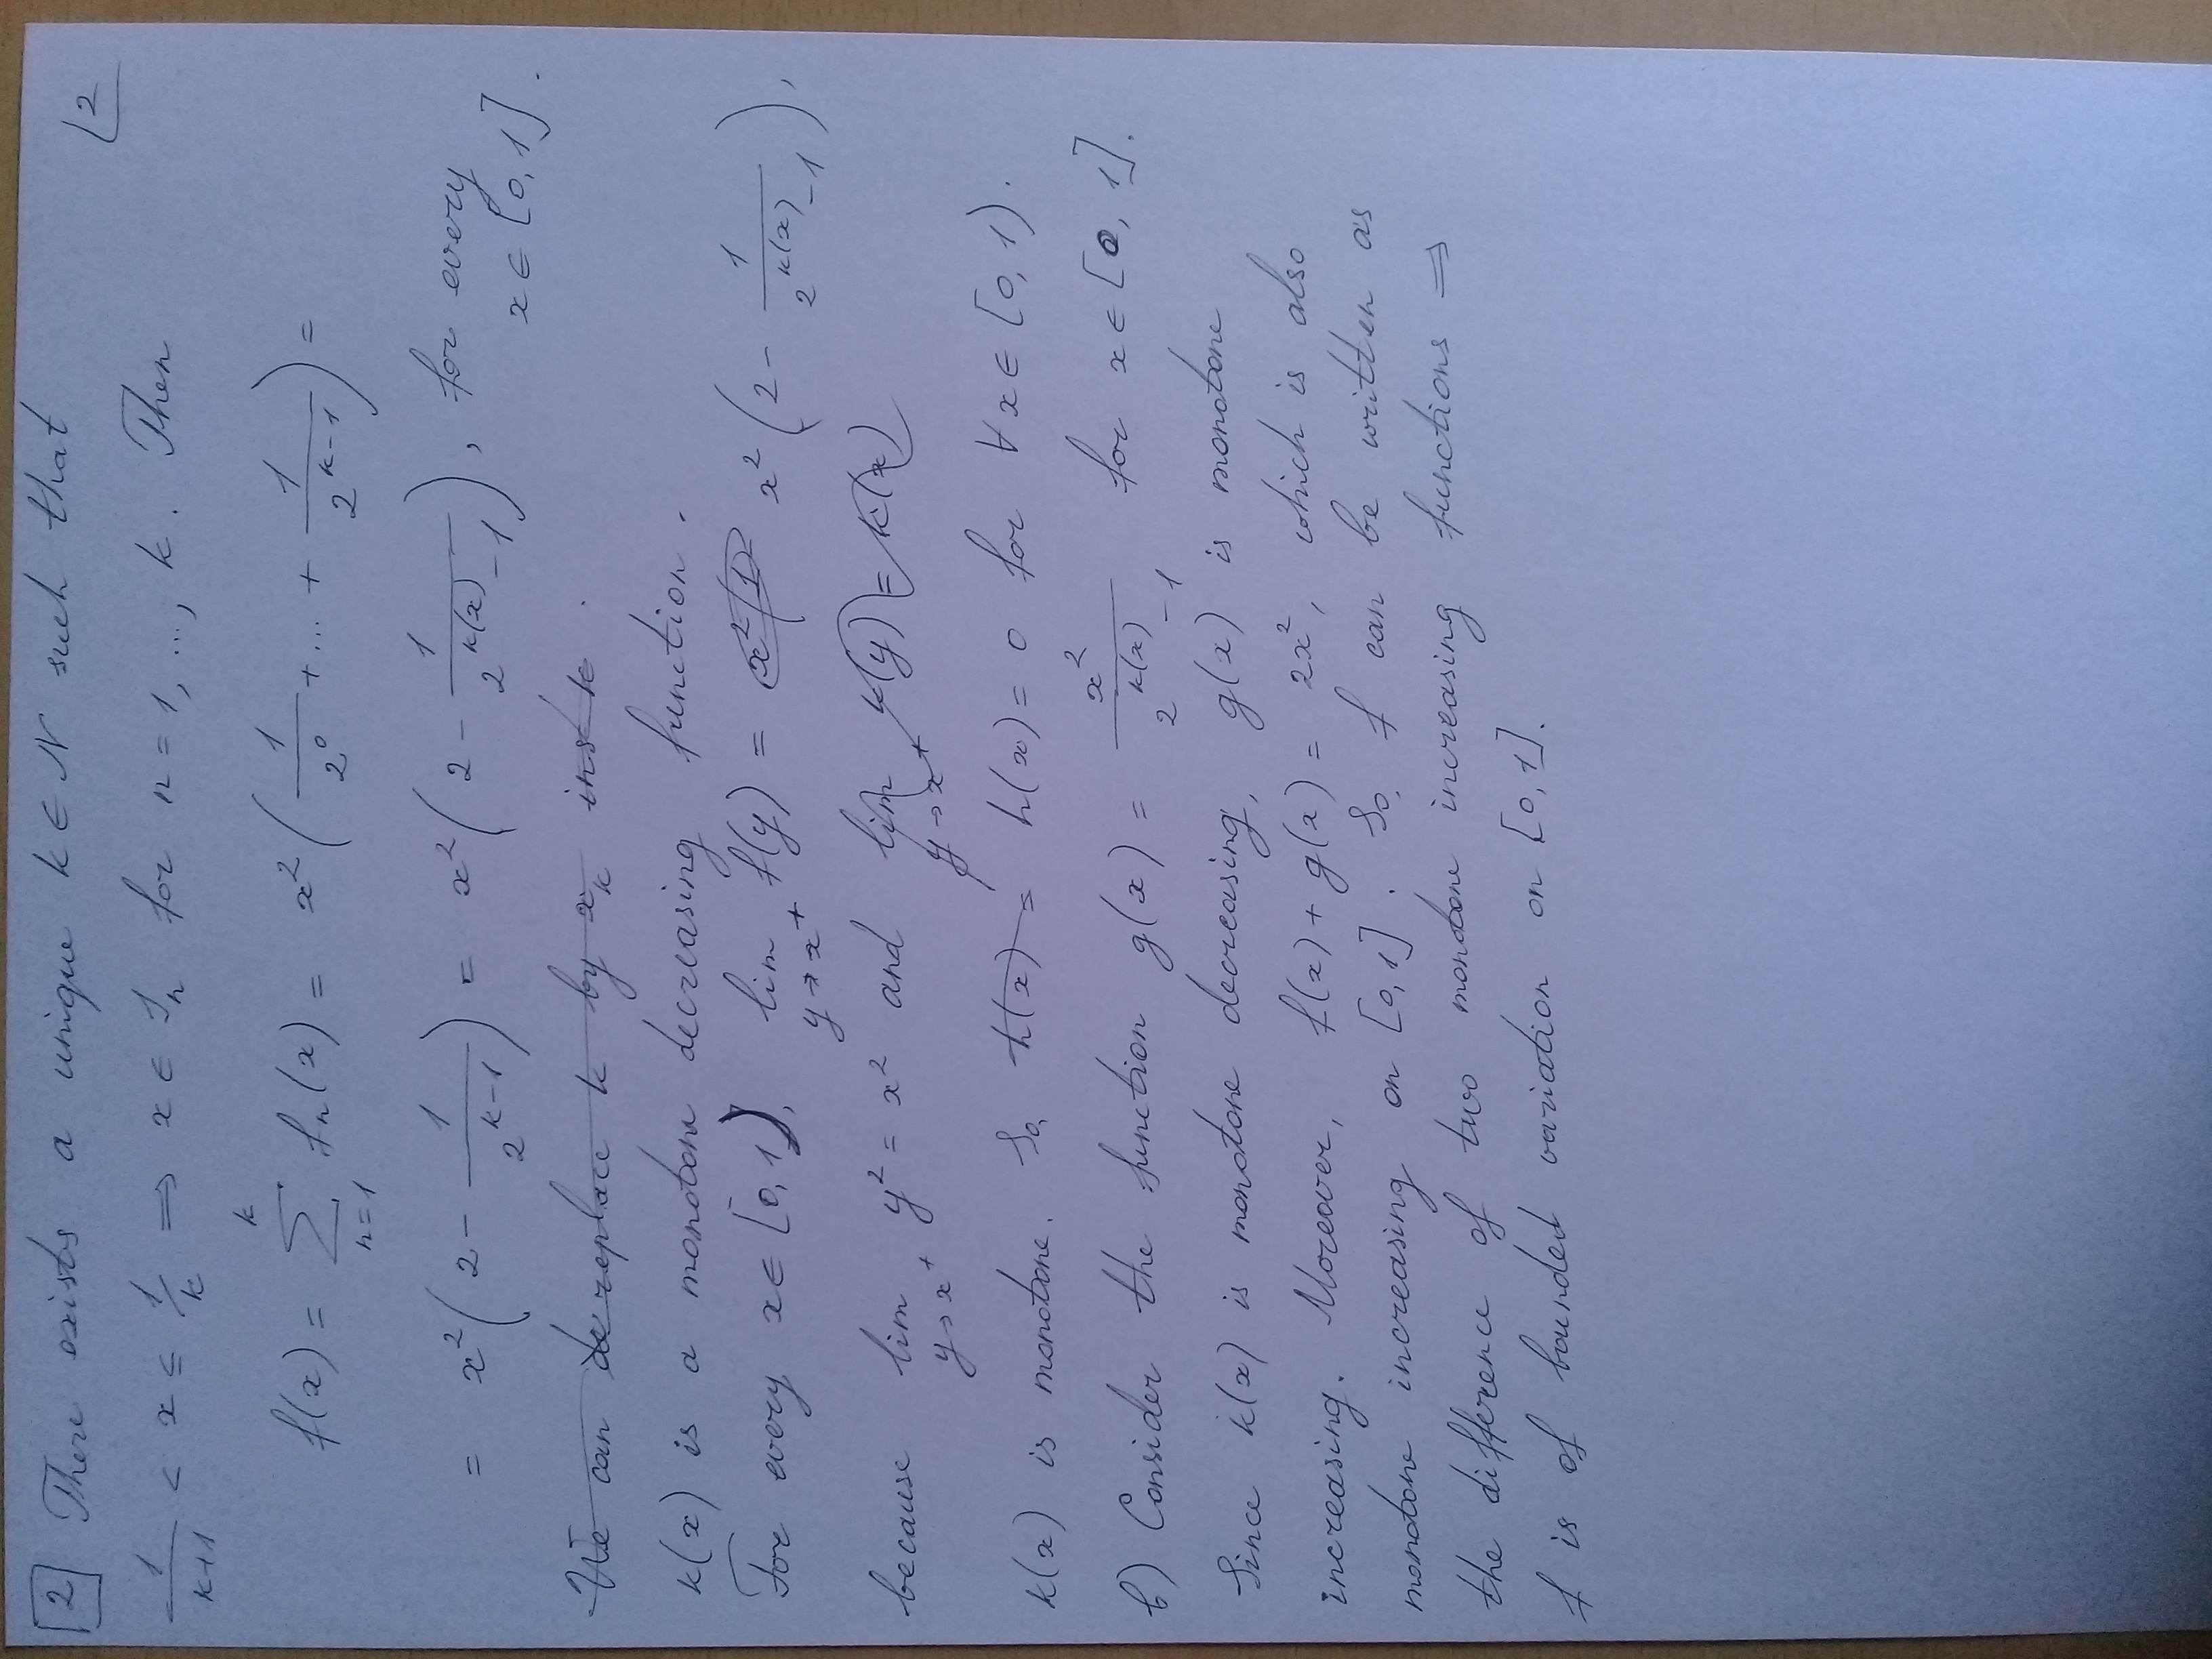 [2] There exists a unique k ∈ N such that
2
1/(k+1) < x ≤ 1/k ⇒ x ∈ I_n for n = 1, ..., k. Then
f(x) = ∑_{n=1}^{k} f_n(x) = x² (1/2^0 + ... + 1/2^{k-1}) =
= x² (2 - 1/2^{k-1}) = x² (2 - 1/2^{k(x)-1}), for every
x ∈ [0, 1].
We can de replace k by x_k inst k .
k(x) is a monotone decreasing function.
For every x ∈ [0, 1), lim_{y→x^+} f(y) = x² (2 - 1/2^{k(x)-1}),
because lim_{y→x^+} y² = x² and lim_{y→x^+} k(y) = k(x)
k(x) is monotone. So, h(x) = h(x) = 0 for ∀ x ∈ [0, 1).
b) Consider the function g(x) = x²/2^{k(x)-1} for x ∈ [0, 1].
Since k(x) is monotone decreasing, g(x) is monotone
increasing. Moreover, f(x) + g(x) = 2x², which is also
monotone increasing on [0, 1]. So, f can be written as
the difference of two monotone increasing functions ⇒
f is of bounded variation on [0, 1].